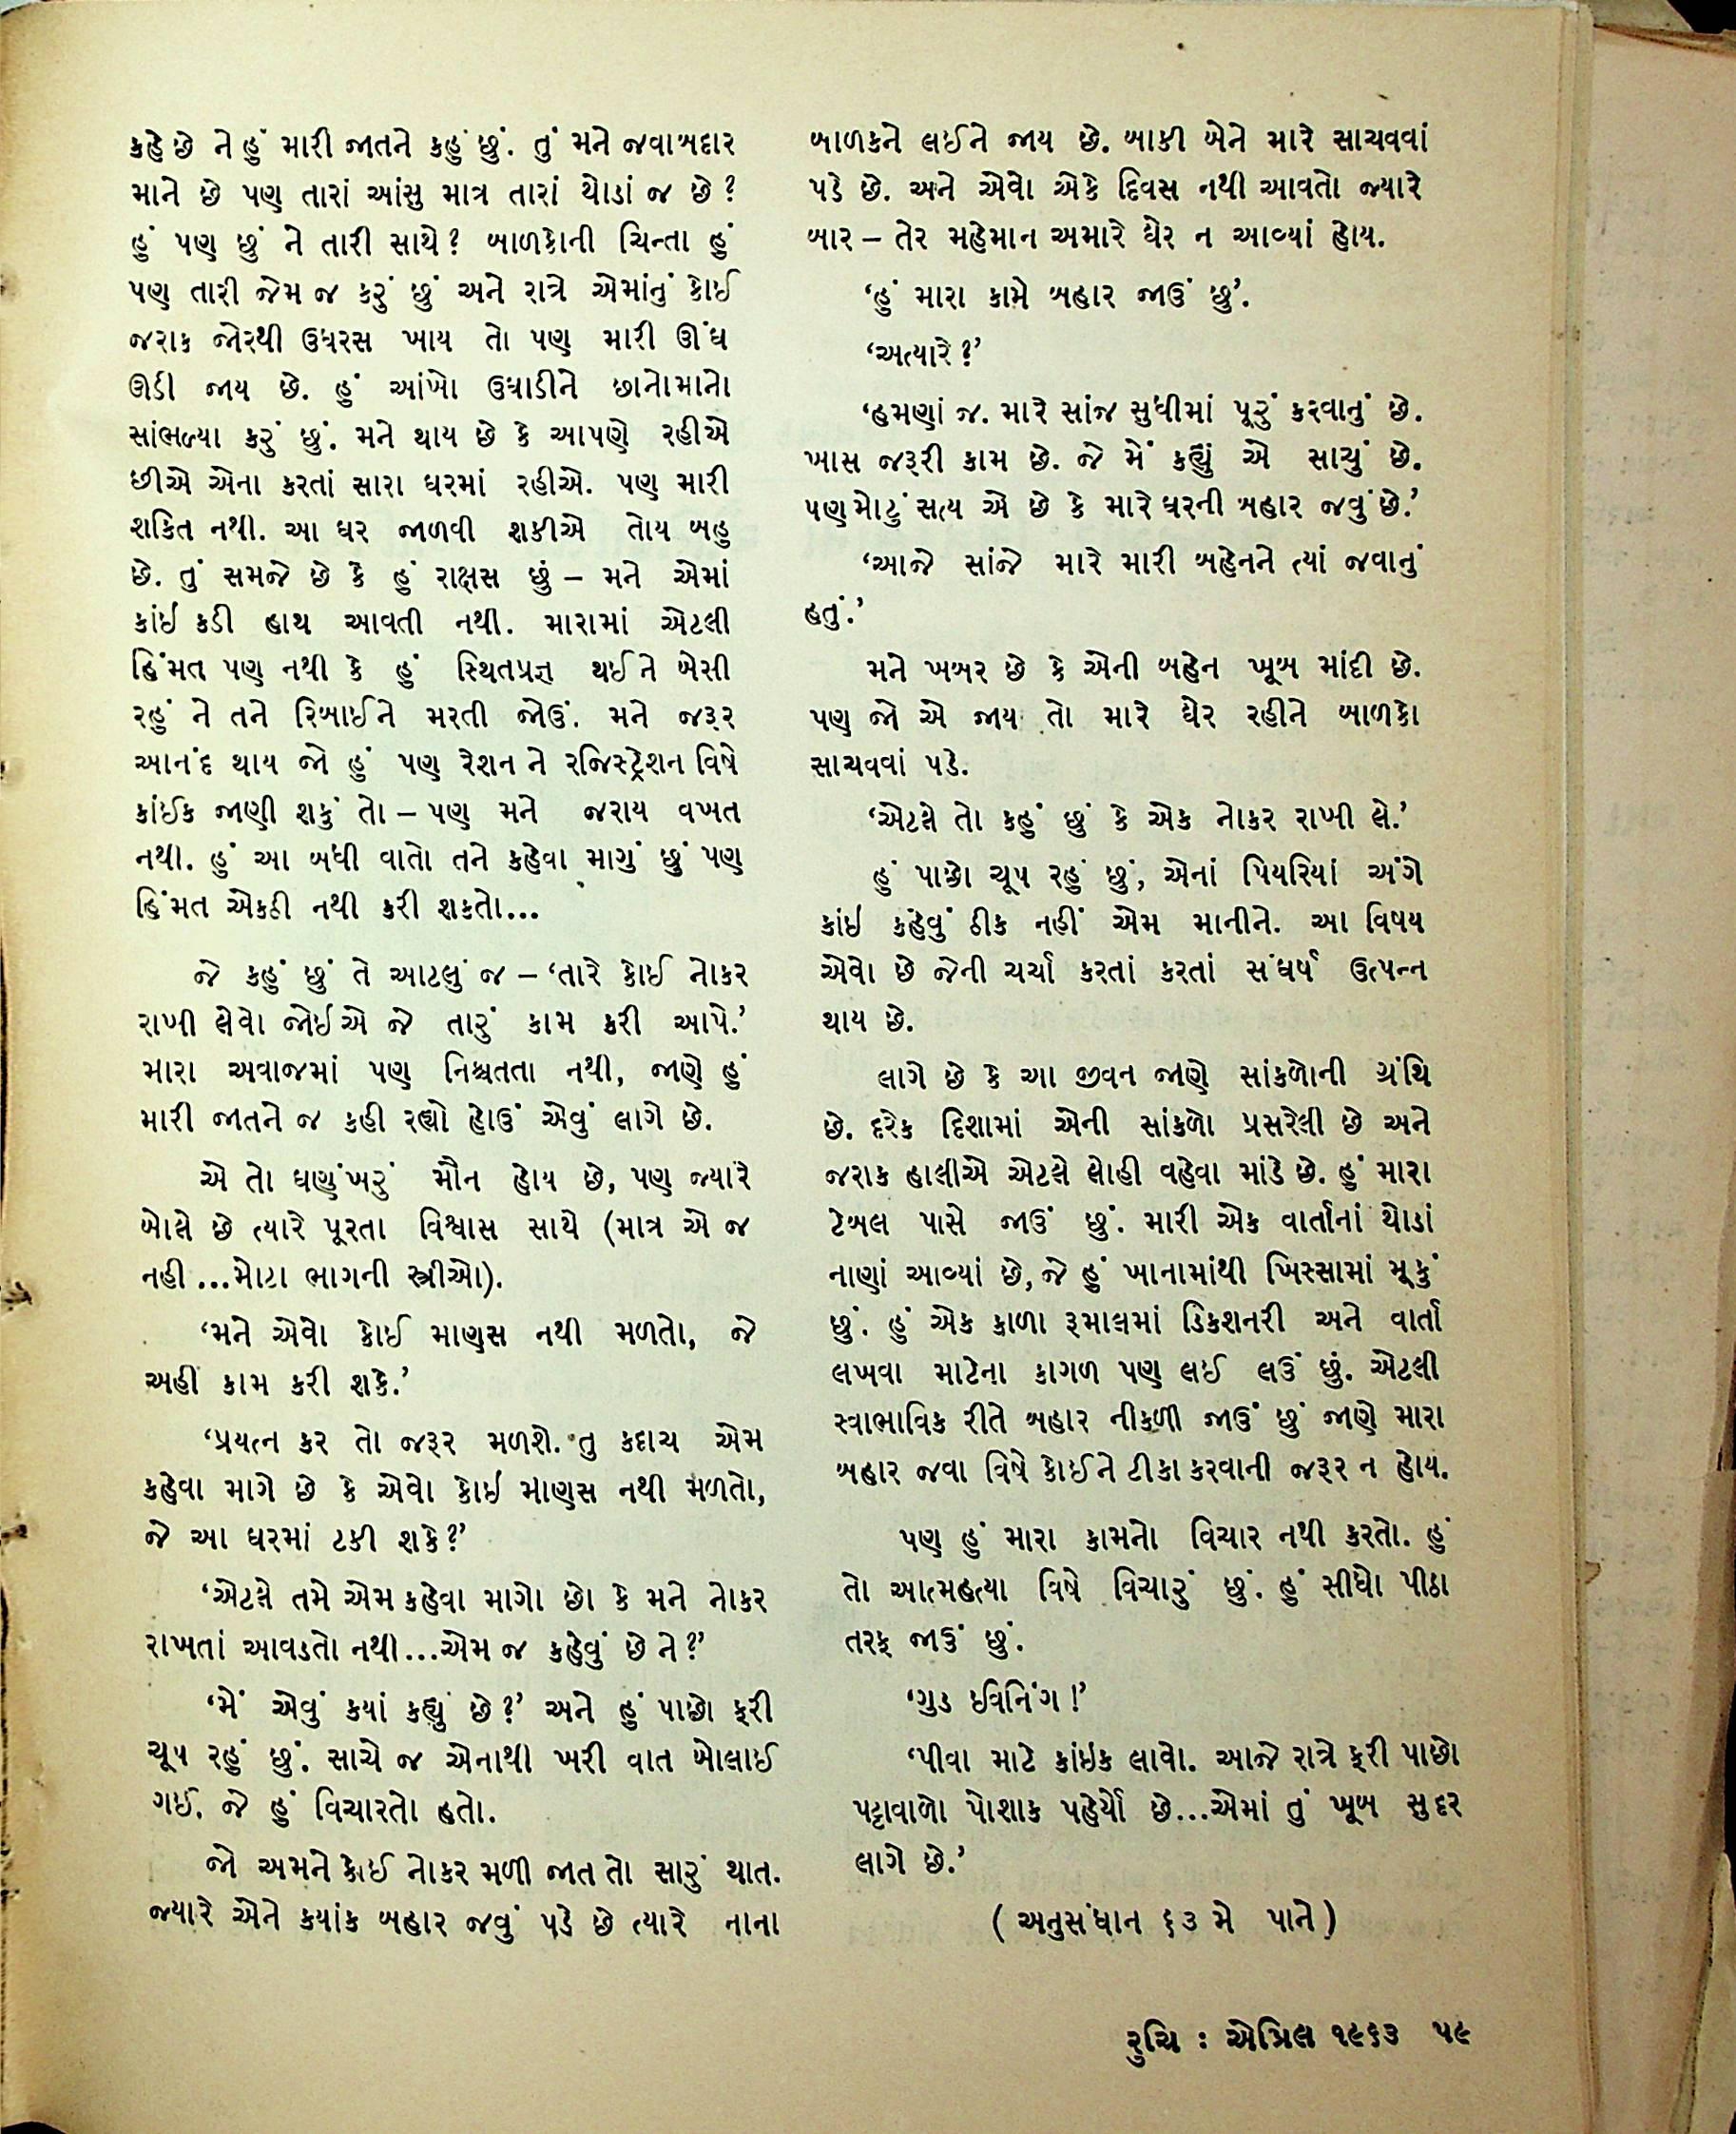 કહે છે ને હું મારી જાતને કહું છું. તું મને જવાબદાર
માને છે પણ તારાં આંસુ માત્ર તારાં થોડાં જ છે?
હું પણ છું ને તારી સાથે? બાળકોની ચિન્તા હું
પણ તારી જેમ જ કરું છું અને રાત્રે એમાંનું કોઈ
જરાક જોરથી ઉધરસ ખાય તો પણ મારી ઊંઘ
ઊડી જાય છે. હું આંખો ઉઘાડીને છાનોમાનો
સાંભળ્યા કરું છું. મને થાય છે કે આપણે રહીએ
છીએ એના કરતાં સારા ઘરમાં રહીએ. પણ મારી
શકિત નથી. આ ઘર જાળવી શકીએ તોય બહુ
છે. તું સમજે છે કે હું રાક્ષસ છું – મને એમાં
કાંઈ કડી હાથ આવતી નથી. મારામાં એટલી
હિંમત પણ નથી કે હું સ્થિતપ્રજ્ઞ થઈને બેસી
રહું ને તને રિબાઈને મરતી જોઉં. મને જરૂર
આનંદ થાય જો હું પણ રેશન ને રજિસ્ટ્રેશન વિષે
કાંઈક જાણી શકું તો – પણ મને જરાય વખત
નથી. હું આ બધી વાતો તને કહેવા માગું છું પણ
હિંમત એકઠી નથી કરી શકતો...
જે કહું છું તે આટલું જ – ‘તારે કોઈ નોકર
રાખી લેવો જોઈએ જે તારું કામ કરી આપે.’
મારા અવાજમાં પણ નિશ્ચતતા નથી, જાણે હું
મારી જાતને જ કહી રહ્યો હોઉં એવું લાગે છે.
એ તો ઘણુંખરું મૌન હોય છે, પણ જ્યારે
બોલે છે ત્યારે પૂરતા વિશ્વાસ સાથે (માત્ર એ જ
નહી...મોટા ભાગની સ્ત્રીઓ).
‘મને એવો કોઈ માણસ નથી મળતો, જે
અહીં કામ કરી શકે.’
‘પ્રયત્ન કર તો જરૂર મળશે. તુ કદાચ એમ
કહેવા માગે છે કે એવો કોઈ માણસ નથી મળતો,
જે આ ઘરમાં ટકી શકે?’
‘એટલે તમે એમ કહેવા માગો છો કે મને નોકર
રાખતાં આવડતો નથી...એમ જ કહેવું છે ને?’
‘મેં એવું કયાં કહ્યું છે?’ અને હું પાછો ફરી
ચૂપ રહું છું. સાચે જ એનાથી ખરી વાત બોલાઈ
ગઈ. જે હું વિચારતો હતો.
જો અમને કોઈ નોકર મળી જાત તો સારું થાત.
જ્યારે એને કયાંક બહાર જવું પડે છે ત્યારે નાના
બાળકને લઈને જાય છે. બાકી બેને મારે સાચવવાં
પડે છે. અને એવો એકે દિવસ નથી આવતો જ્યારે
બાર – તેર મહેમાન અમારે ઘેર ન આવ્યાં હોય.
‘હું મારા કામે બહાર જાઉં છુ’.
‘અત્યારે?’
‘હમણાં જ. મારે સાંજ સુધીમાં પૂરું કરવાનું છે.
ખાસ જરૂરી કામ છે. જે મેં કહ્યું એ સાચું છે.
પણ મોટું સત્ય એ છે કે મારે ઘરની બહાર જવું છે.’
‘આજે સાંજે મારે મારી બહેનને ત્યાં જવાનું
હતું.’
મને ખબર છે કે એની બહેન ખૂબ માંદી છે.
પણ જો એ જાય તો મારે ઘેર રહીને બાળકો
સાચવવાં પડે.
‘એટલે તો કહું છું કે એક નોકર રાખી લે.’
હું પાછો ચૂપ રહું છું, એનાં પિયરિયાં અંગે
કાંઈ કહેવું ઠીક નહીં એમ માનીને. આ વિષય
એવો છે જેની ચર્ચા કરતાં કરતાં સંઘર્ષ ઉત્પન્ન
થાય છે.
લાગે છે કે આ જીવન જાણે સાંકળોની ગ્રંથિ
છે. દરેક દિશામાં એની સાંકળો પ્રસરેલી છે અને
જરાક હાલીએ એટલે લોહી વહેવા માંડે છે. હું મારા
ટેબલ પાસે જાઉં છું. મારી એક વાર્તાનાં થોડાં
નાણાં આવ્યાં છે, જે હું ખાનામાંથી ખિસ્સામાં મૂકું
છું. હું એક કાળા રૂમાલમાં ડિકશનરી અને વાર્તા
લખવા માટેના કાગળ પણ લઈ લઉં છું. એટલી
સ્વાભાવિક રીતે બહાર નીકળી જાઉં છું જાણે મારા
બહાર જવા વિષે કોઈને ટીકા કરવાની જરૂર ન હોય.
પણ હું મારા કામનો વિચાર નથી કરતો. હું
તો આત્મહત્યા વિષે વિચારું છું. હું સીધો પીઠા
તરફ જાઉં છું.
‘ગુડ ઈવિનિંગ!’
‘પીવા માટે કાંઈક લાવો. આજે રાત્રે ફરી પાછો
પટ્ટાવાળો પોશાક પહેર્યો છે...એમાં તું ખૂબ સુદર
લાગે છે.’
(અનુસંધાન ૬૩ મે પાને)
રુચિ : એપ્રિલ ૧૯૬૩ ૫૯